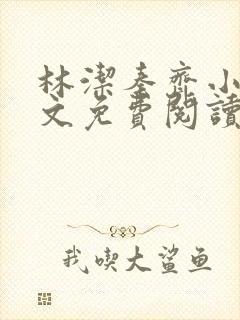 林潔秦齊小
文免費閱讀
我喫大鯊鱼